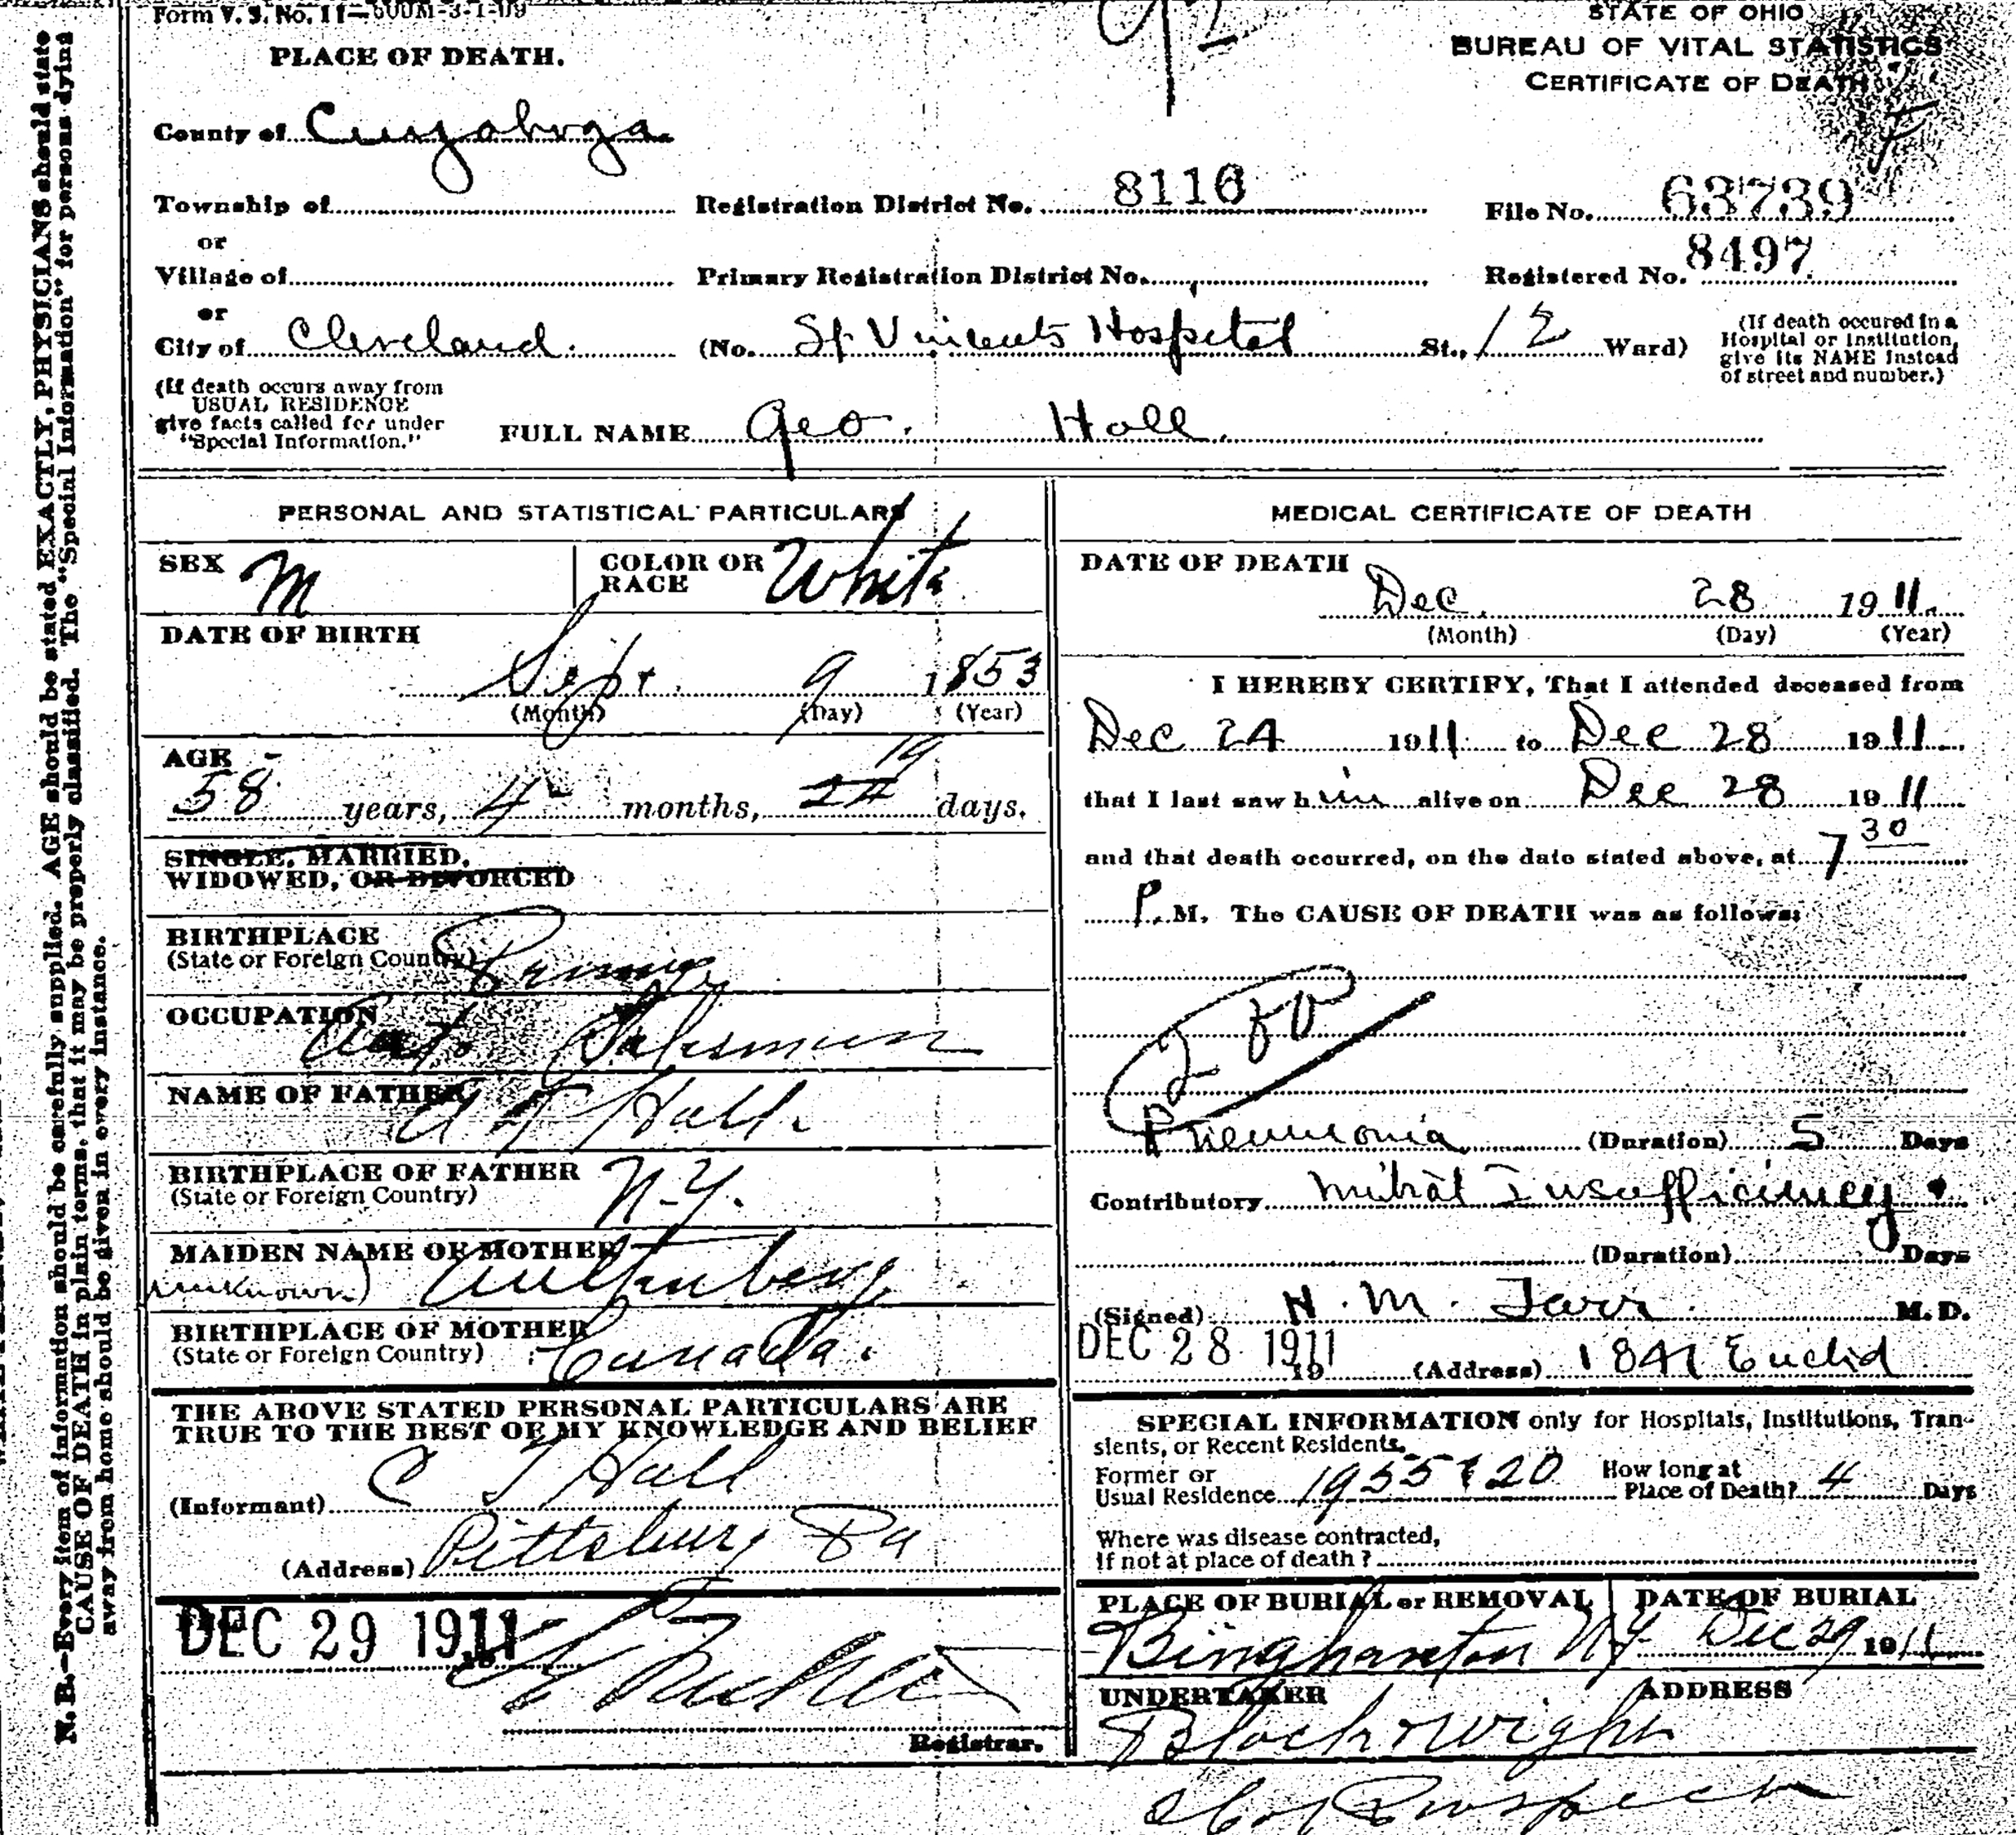 Form V. S. No. 11—500M-3-1-09
92
STATE OF OHIO
BUREAU OF VITAL STATISTICS
CERTIFICATE OF DEATH
PLACE OF DEATH.
County of Cuyahoga
Township of Registration District No. 8116 File No. 63739
or
Village of Primary Registration District No. Registered No. 8497
or
City of Cleveland. (No. St Vincents Hospital St., 12 Ward)
(If death occured in a
Hospital or Institution,
give its NAME instead
of street and number.)
(If death occurs away from
USUAL RESIDENCE
give facts called for under
"Special Information."
FULL NAME Geo. Hall
PERSONAL AND STATISTICAL PARTICULARS
SEX M COLOR OR RACE White
DATE OF BIRTH
Sept. 9 1853
(Month) (Day) (Year)
AGE 19
58 years, 4 months, 24 days.
SINGLE, MARRIED,
WIDOWED, OR DIVORCED
BIRTHPLACE
(State or Foreign Country) Penna
OCCUPATION
Auto Salesman
NAME OF FATHER
Hall.
BIRTHPLACE OF FATHER N.Y.
(State or Foreign Country)
MAIDEN NAME OF MOTHER
(unknown)
BIRTHPLACE OF MOTHER
(State or Foreign Country) Canada.
THE ABOVE STATED PERSONAL PARTICULARS ARE
TRUE TO THE BEST OF MY KNOWLEDGE AND BELIEF
(Informant) C Hall
(Address) Pittsburg Pa
DEC 29 1911
Registrar.
MEDICAL CERTIFICATE OF DEATH
DATE OF DEATH
Dec. 28 1911.
(Month) (Day) (Year)
I HEREBY CERTIFY, That I attended deceased from
Dec 24 1911 to Dec 28 1911
that I last saw him alive on Dec 28 1911
and that death occurred, on the date stated above, at 7 30
P. M. The CAUSE OF DEATH was as follows:
Pneumonia (Duration) 5 Days
Contributory Mitral Insufficiency
(Duration) Days
(Signed) H. M. M. D.
DEC 28 1911 19 (Address) 1841 Euclid
SPECIAL INFORMATION only for Hospitals, Institutions, Tran-
sients, or Recent Residents.
Former or
Usual Residence 1955 E 20 How long at
Place of Death? 4 Days
Where was disease contracted,
If not at place of death?
PLACE OF BURIAL or REMOVAL DATE OF BURIAL
Binghamton N.Y. Dec 29 1911
UNDERTAKER ADDRESS
Prospect
N. B.—Every item of information should be carefully supplied. AGE should be stated EXACTLY, PHYSICIANS should state
CAUSE OF DEATH in plain terms, that it may be properly classified. The "Special Information" for persons dying
away from home should be given in every instance.